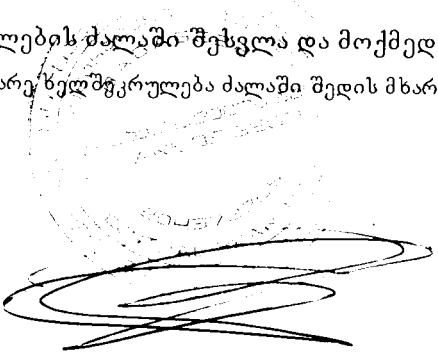 ლების ძალაში შესვლა და მოქმედ
არე ხელშეკრულება ძალაში შედის მხარ